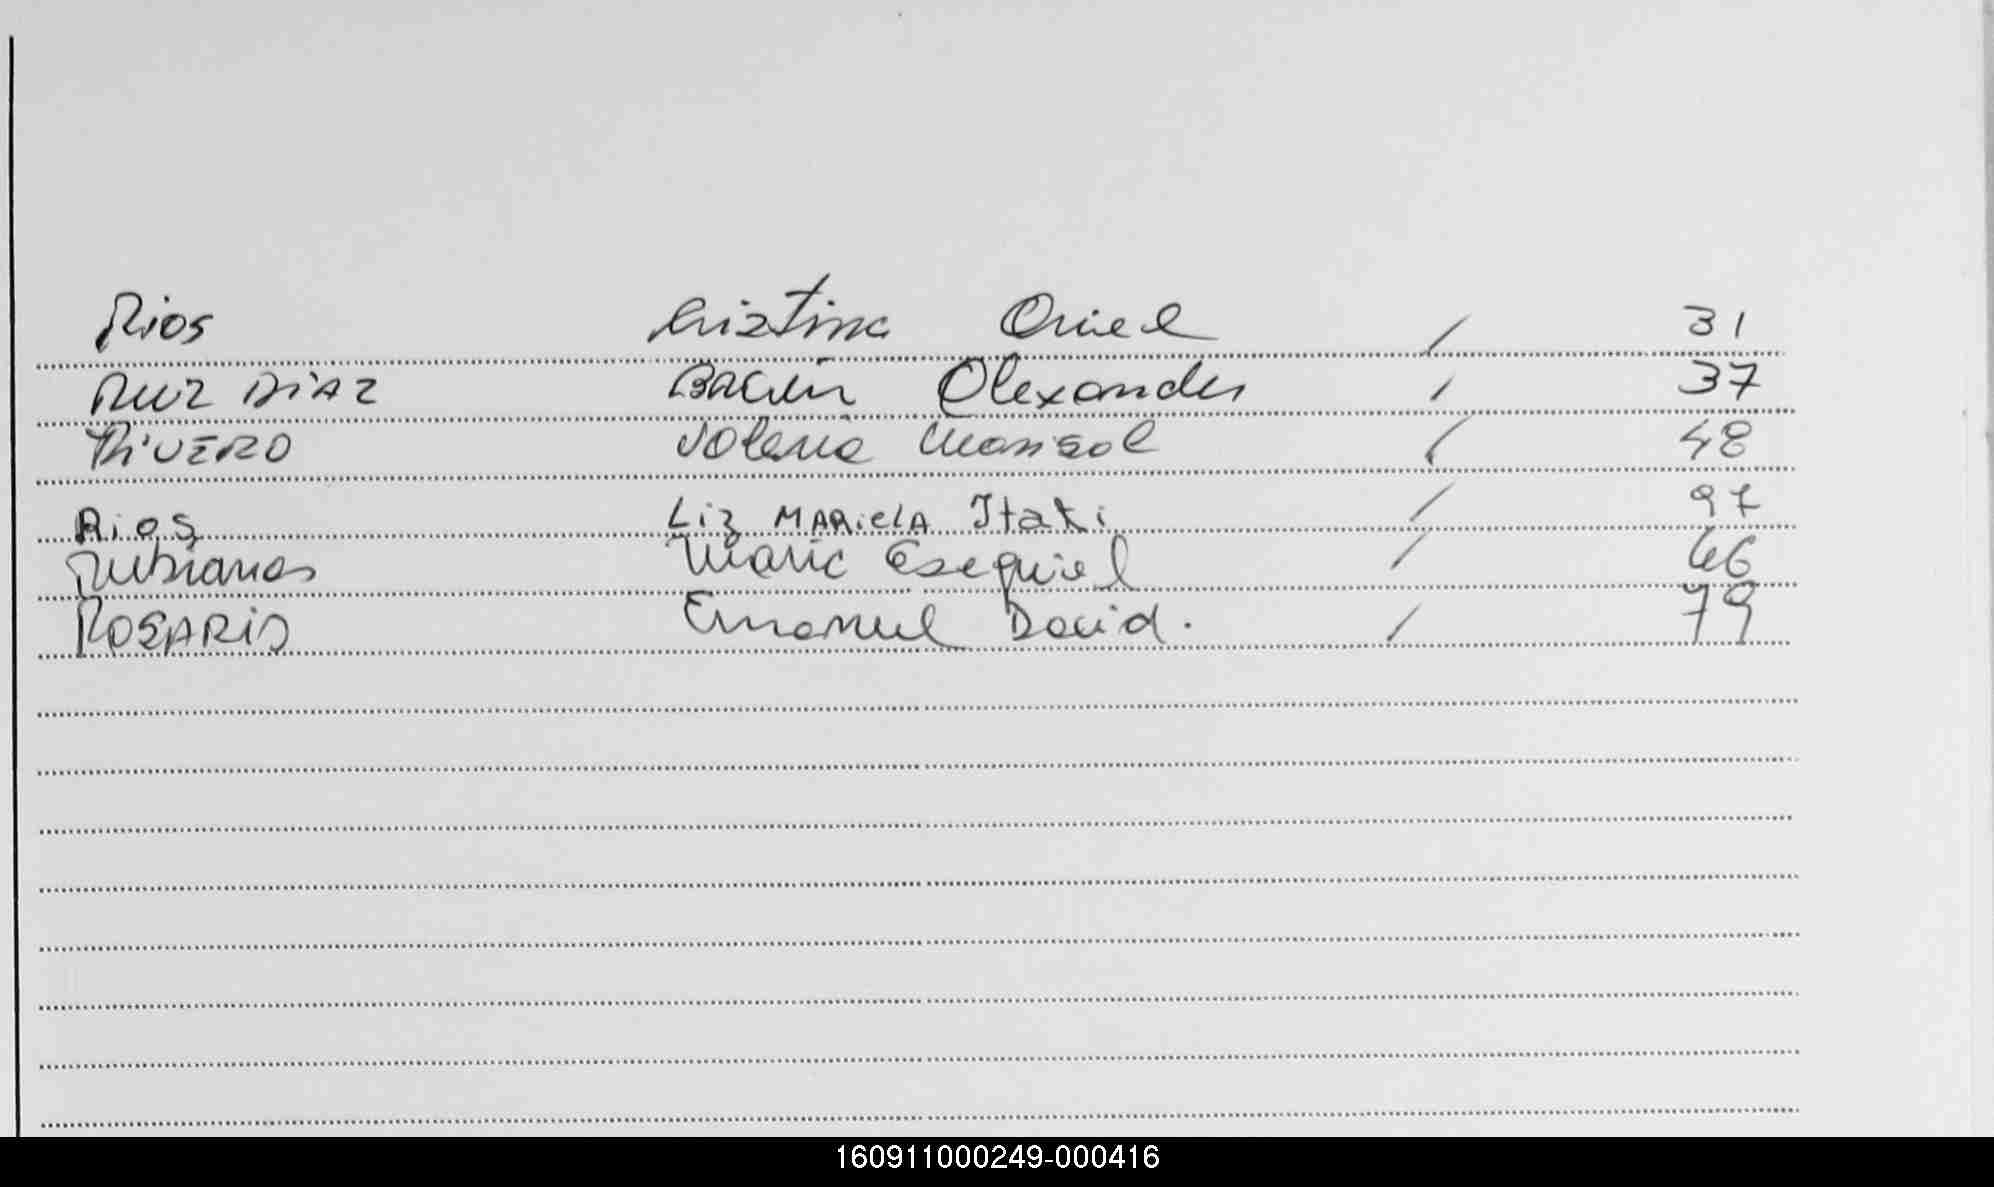 Rios Cristina Oriel / 31
RUIZ DIAZ Braian Alexander / 37
RIVERO Valeria Marisol / 48
Rios Liz MARiElA Itati / 97
Rubianes Mario Ezequiel / 66
ROSARIO Emanuel David. / 79
160911000249-000416